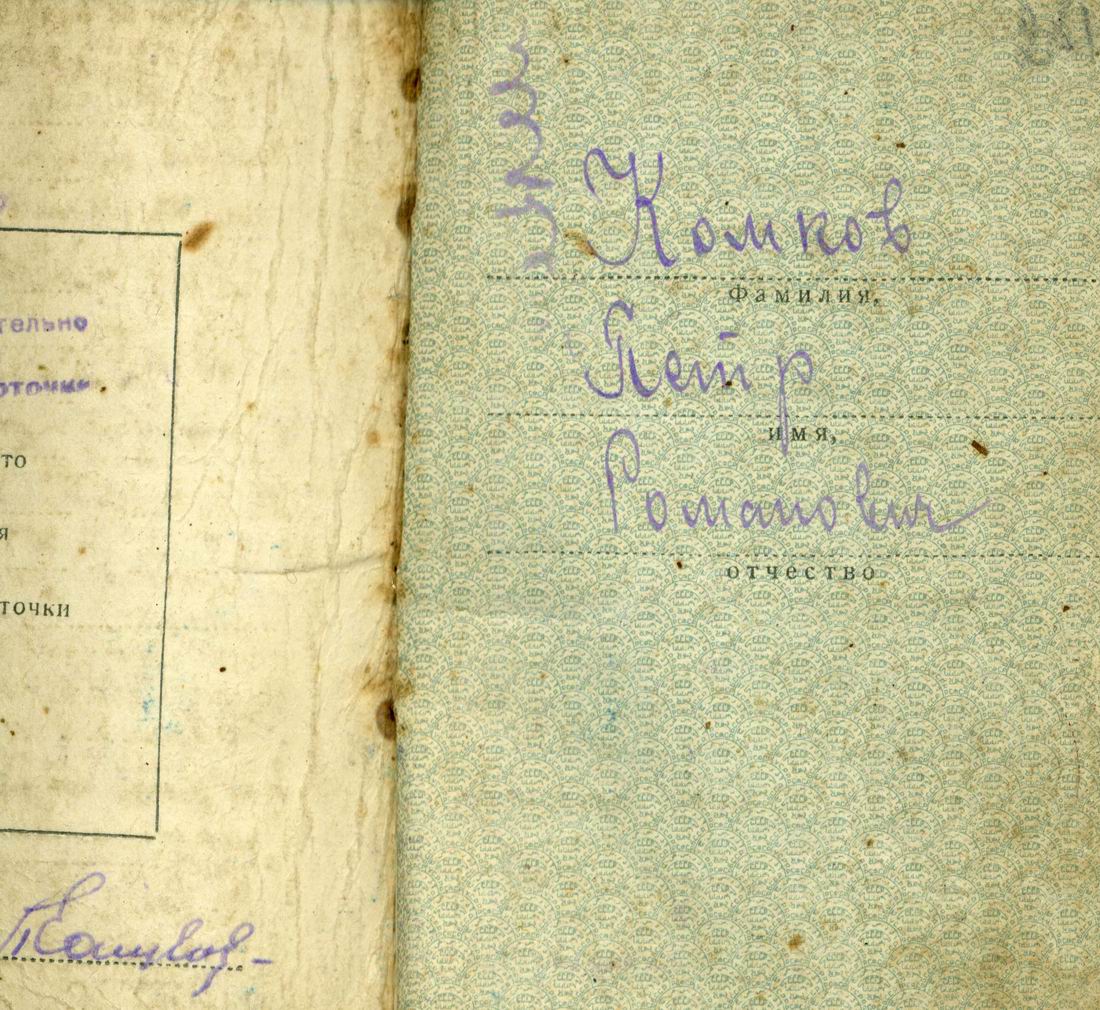 тельно
то
я
точки
Комков
Фамилия,
Петр
имя,
Романович
отчество